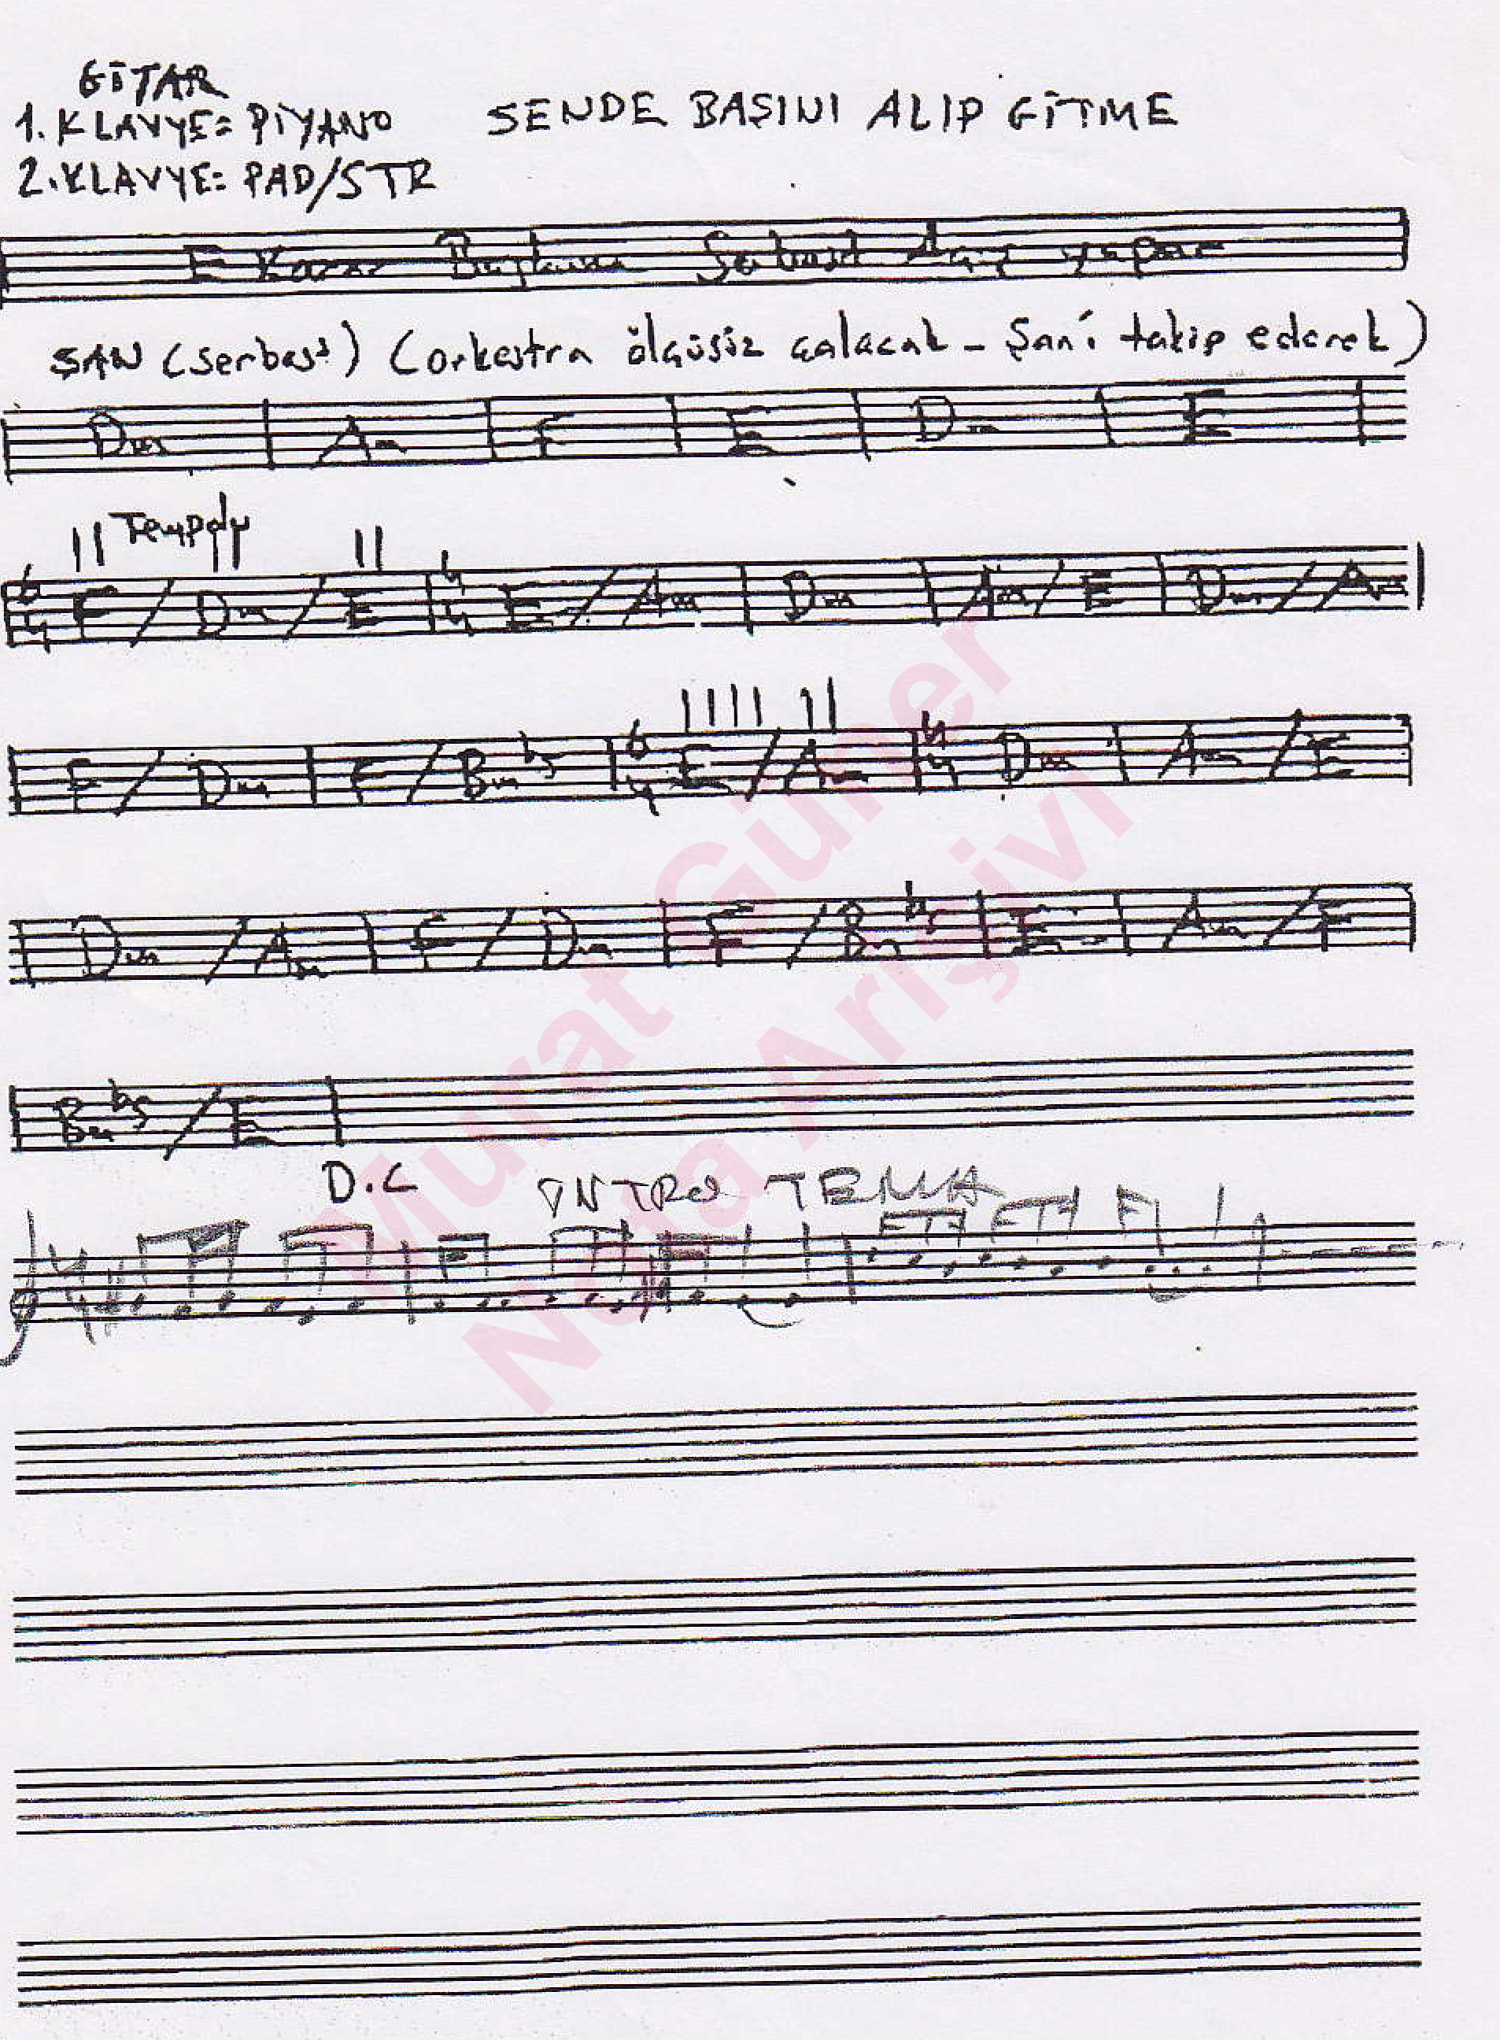 GİTAR
1. KLAVYE= PİYANO SENDE BAŞINI ALIP GİTME
2. KLAVYE= PAD/STR
E Karar Serbest Açış yapar
ŞAN (serbest) (orkestra ölçüsüz çalacak - Şan'ı takip ederek)
Dm Am F E Dm E
Tempolu
6/4 F / Dm / E 4/4 E / Am Dm Am / E Dm / Am
F / Dm F / Bm b5 6/4 E / Am 4/4 Dm Am / E
Dm / Am F / Dm F / Bm b5 E Am / F
Bm b5 / E
D.C INTRO TEMA
Murat Güner
Nota Arişivi